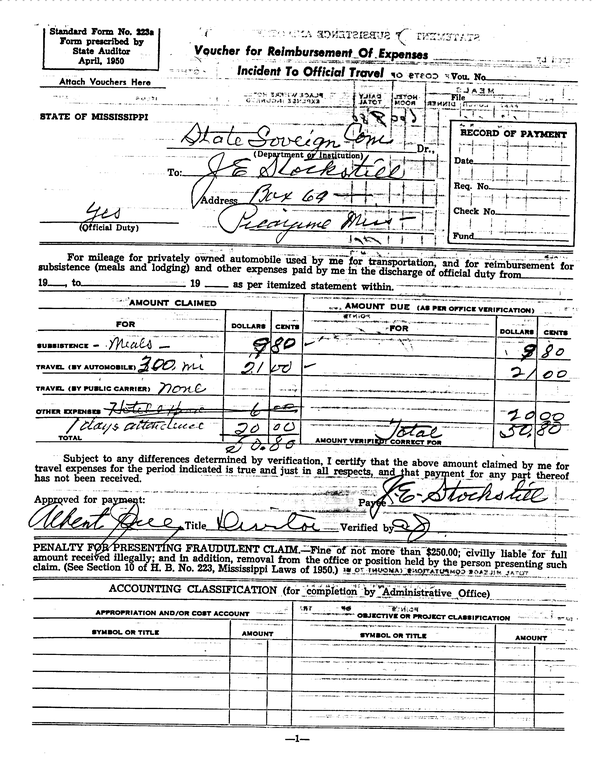 Standard Form No. 223a
Form prescribed by
State Auditor
April, 1950
Attach Vouchers Here
Voucher for Reimbursement Of Expenses
Incident To Official Travel
Vou. No.
File
STATE OF MISSISSIPPI
RECORD OF PAYMENT
State Soveign Com
(Department or Institution)
Dr.,
To: J E Stockstill
Date
Req. No.
Address Box 69
Check No.
yes
(Official Duty)
Picayune Miss
Fund
For mileage for privately owned automobile used by me for transportation, and for reimbursement for
subsistence (meals and lodging) and other expenses paid by me in the discharge of official duty from
19___, to___ 19___ as per itemized statement within.
AMOUNT CLAIMED
AMOUNT DUE (AS PER OFFICE VERIFICATION)
FOR DOLLARS CENTS FOR DOLLARS CENTS
SUBSISTENCE - Meals - 9 80 9 80
TRAVEL (BY AUTOMOBILE) 300 mi 21 00 21 00
TRAVEL (BY PUBLIC CARRIER) none
OTHER EXPENSES 6 20 00
1 days attendance 20 00 Total 50.80
TOTAL 50.80 AMOUNT VERIFIED CORRECT FOR
Subject to any differences determined by verification, I certify that the above amount claimed by me for
travel expenses for the period indicated is true and just in all respects, and that payment for any part thereof
has not been received.
Payee J. E. Stockstill
Approved for payment:
Albert Title Director Verified by
PENALTY FOR PRESENTING FRAUDULENT CLAIM.—Fine of not more than $250.00; civilly liable for full
amount received illegally; and in addition, removal from the office or position held by the person presenting such
claim. (See Section 10 of H. B. No. 223, Mississippi Laws of 1950.)
ACCOUNTING CLASSIFICATION (for completion by Administrative Office)
APPROPRIATION AND/OR COST ACCOUNT
OBJECTIVE OR PROJECT CLASSIFICATION
SYMBOL OR TITLE AMOUNT SYMBOL OR TITLE AMOUNT
—1—